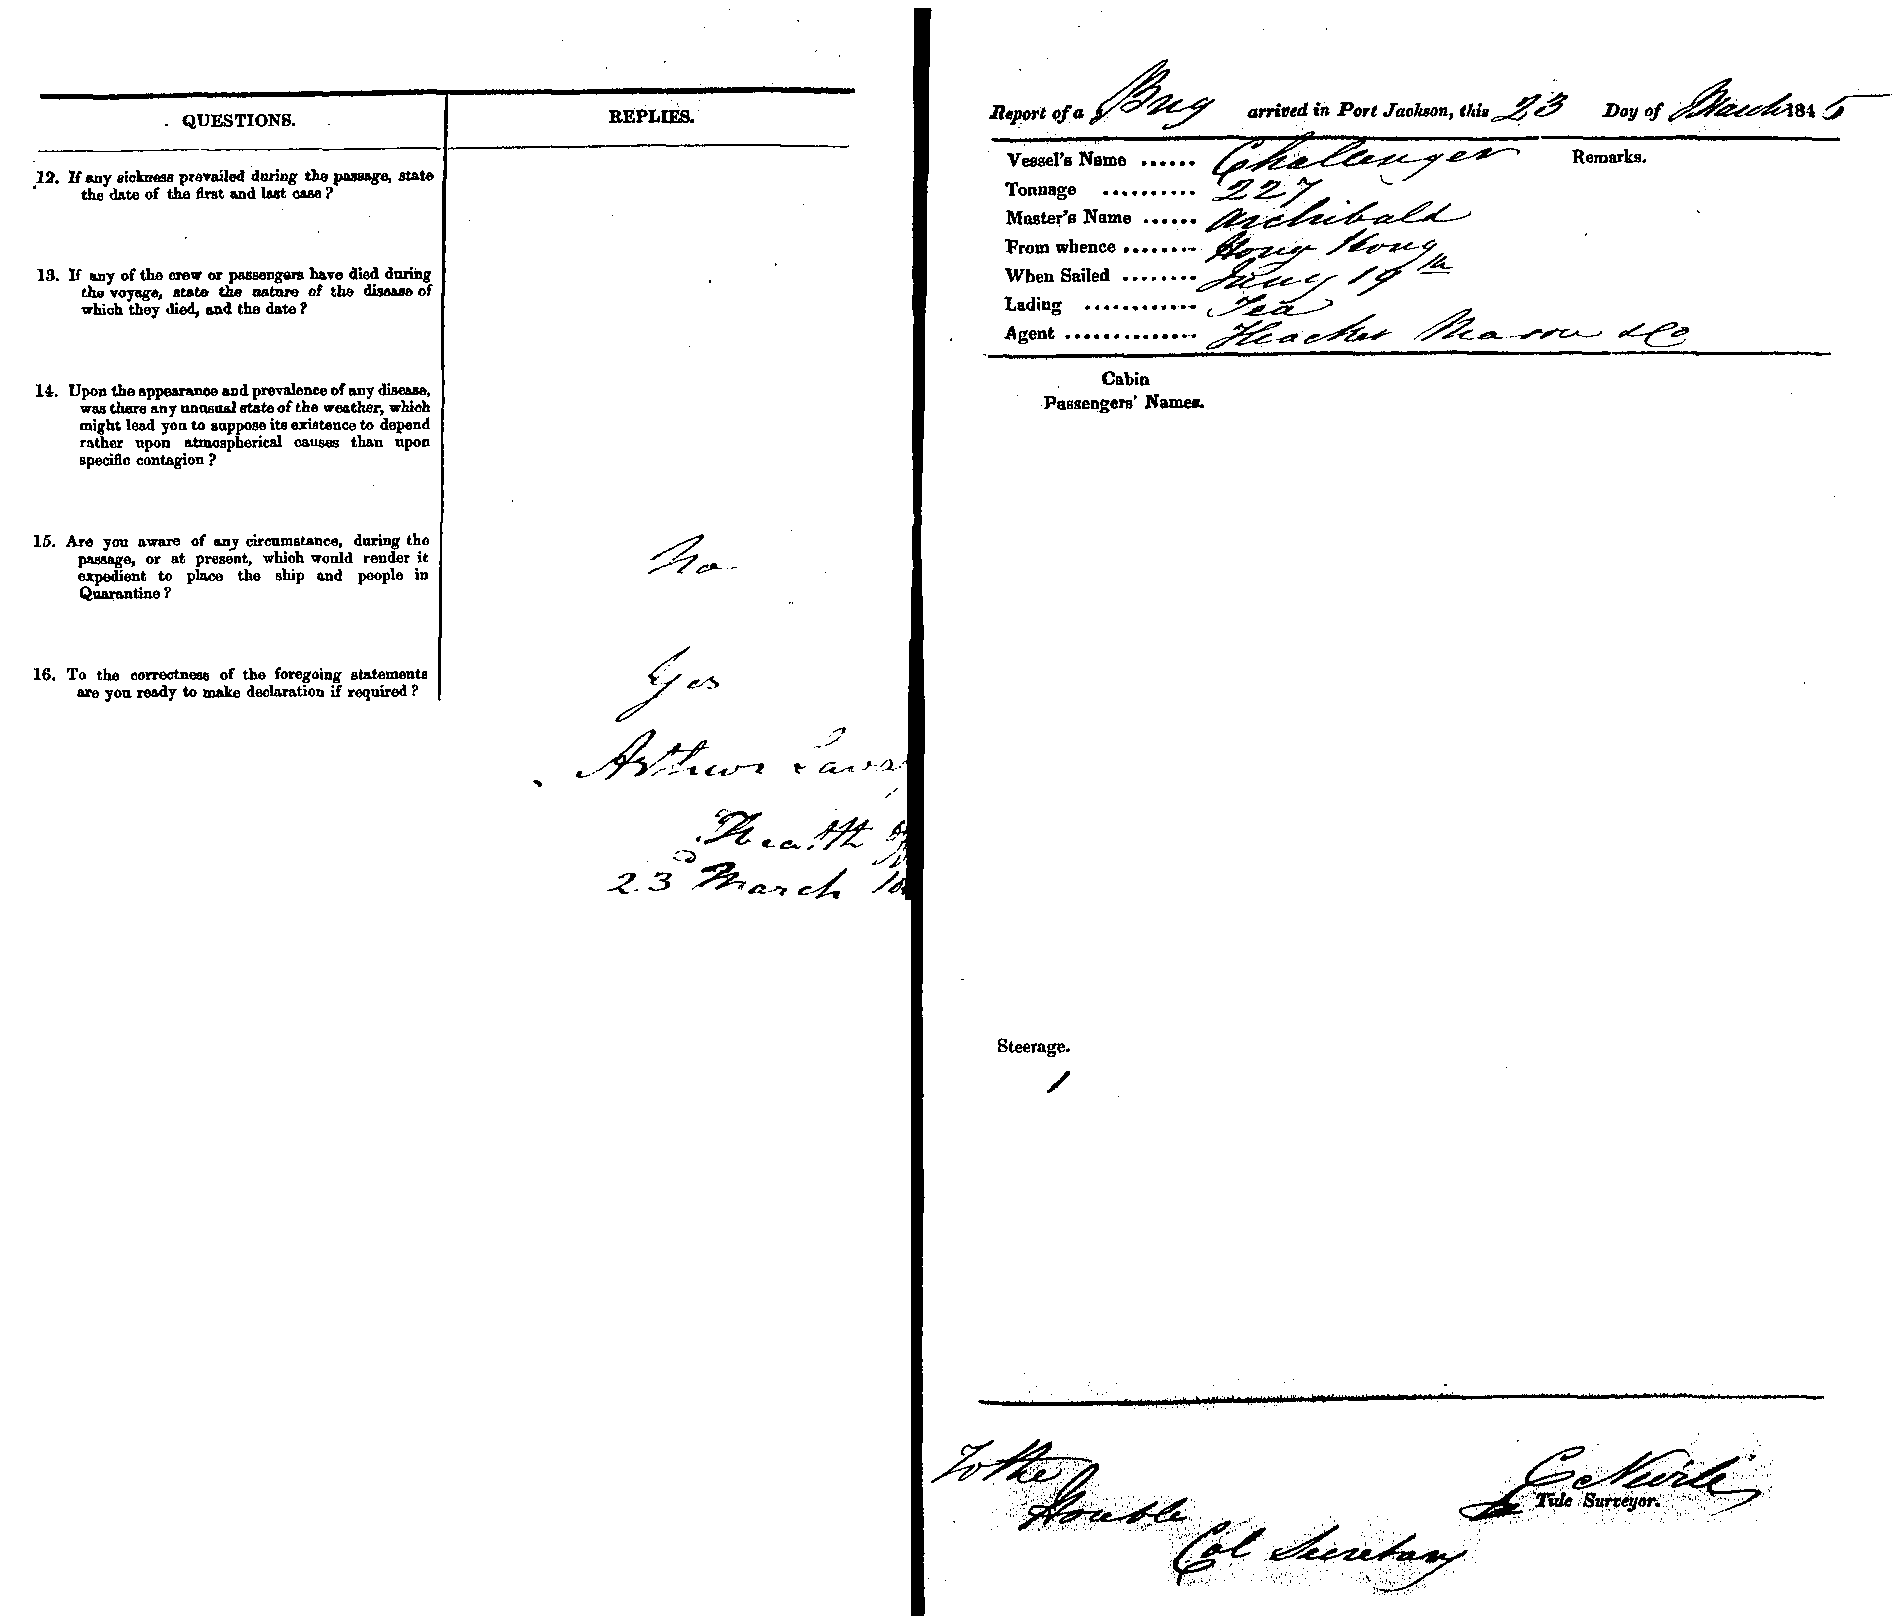 QUESTIONS.
REPLIES.
12. If any sickness prevailed during the passage, state
the date of the first and last case?
13. If any of the crew or passengers have died during
the voyage, state the nature of the disease of
which they died, and the date?
14. Upon the appearance and prevalence of any disease,
was there any unusual state of the weather, which
might lead you to suppose its existence to depend
rather upon atmospherical causes than upon
specific contagion?
15. Are you aware of any circumstance, during the
passage, or at present, which would render it
expedient to place the ship and people in
Quarantine?
No
16. To the correctness of the foregoing statements
are you ready to make declaration if required?
Yes
Arthur
Health
23d March
Report of a Brig arrived in Port Jackson, this 23 Day of March 1845
Vessel's Name ...... Challenger
Remarks.
Tonnage .......... 227
Master's Name ...... Archibald
From whence ........ Hong Kong
When Sailed ........ Jany 19th
Lading ............ Tea
Agent .............. Heacker Mason & Co
Cabin
Passengers' Names.
Steerage.
1
To the
Honble
Col Secretary
C
Tide Surveyor.